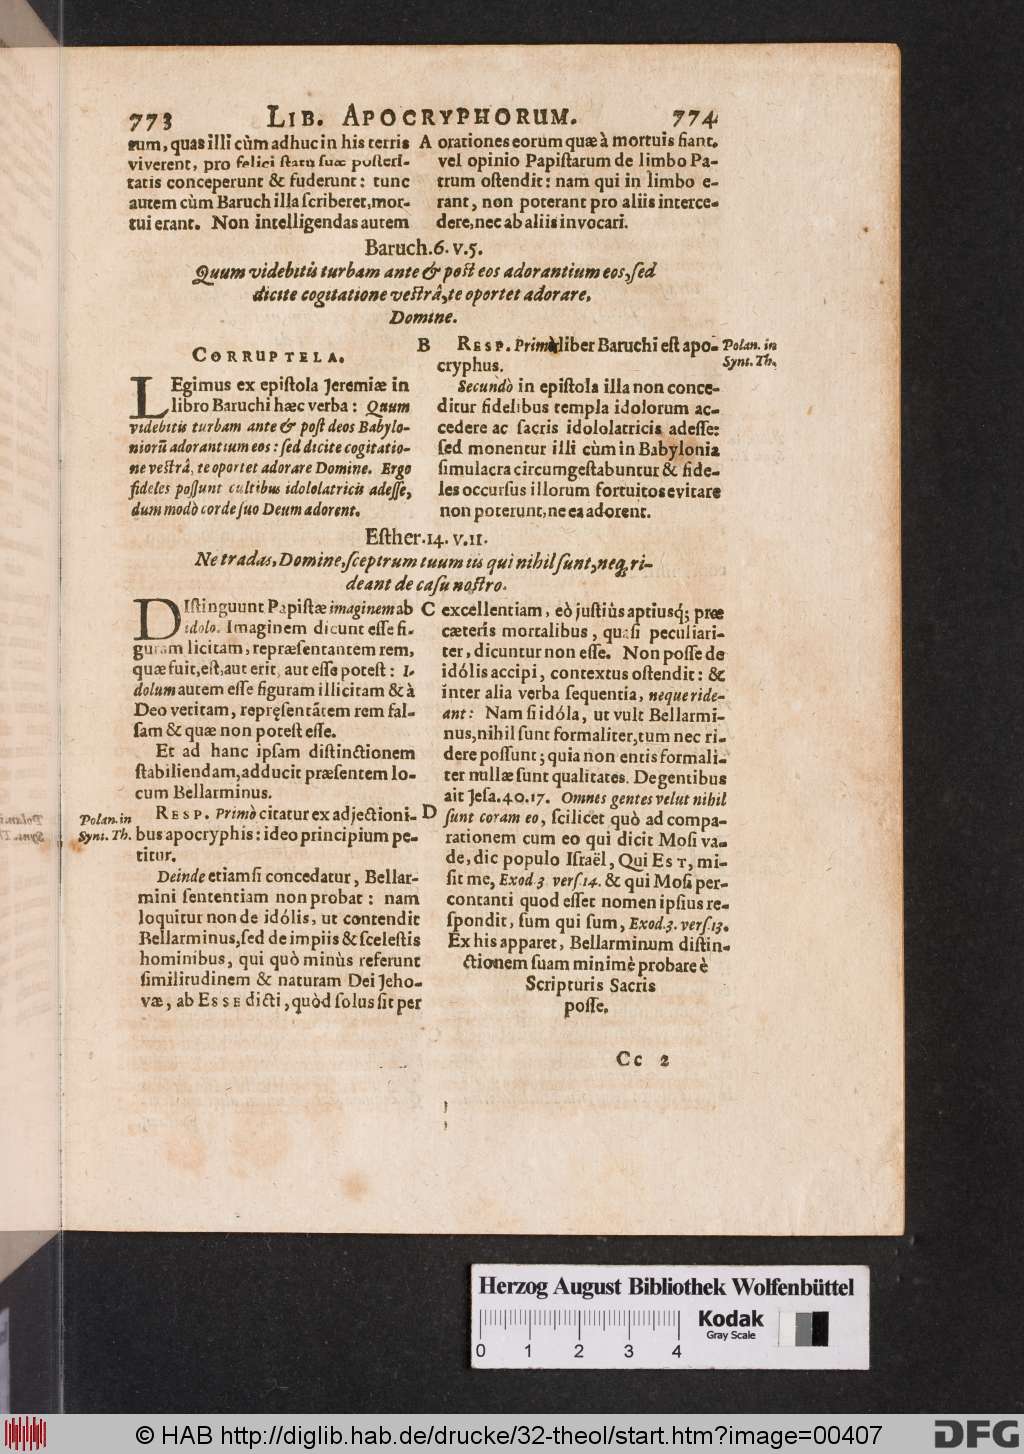 773 LIB. APOCRYPHORUM. 774
eum, quas illi cùm adhuc in his terris
viverent, pro felici statu suæ posteri-
tatis conceperunt & fuderunt: tunc
autem cùm Baruch illa scriberet, mor-
tui erant. Non intelligendas autem
A orationes eorum quæ à mortuis fiant,
vel opinio Papistarum de limbo Pa-
trum ostendit: nam qui in limbo e-
rant, non poterant pro aliis interce-
dere, nec ab aliis invocari.
Baruch.6. v.5.
Quum videbitis turbam ante & post eos adorantium eos, sed
dicite cogitatione vestrâ, te oportet adorare,
Domine.
CORRUPTELA.
LEgimus ex epistola Jeremiæ in
libro Baruchi hæc verba: Quum
videbitis turbam ante & post deos Babylo-
niorũ adorantium eos: sed dicite cogitatio-
ne vestrâ, te oportet adorare Domine. Ergo
fideles possunt cultibus idololatricis adesse,
dum modò corde suo Deum adorent.
B RESP. Primò liber Baruchi est apo-
cryphus.
Polan. in
Synt. Th.
Secundò in epistola illa non conce-
ditur fidelibus templa idolorum ac-
cedere ac sacris idololatricis adesse:
sed monentur illi cùm in Babylonia
simulacra circumgestabuntur & fide-
les occursus illorum fortuitos evitare
non poterunt, ne ea adorent.
Esther.14. v.11.
Ne tradas, Domine, sceptrum tuum iis qui nihil sunt, neq; ri-
deant de casu nostro.
DIstinguunt Papistæ imaginem ab
idolo. Imaginem dicunt esse fi-
guram licitam, repræsentantem rem,
quæ fuit, est, aut erit, aut esse potest: I-
dolum autem esse figuram illicitam & à
Deo vetitam, repręsentãtem rem fal-
sam & quæ non potest esse.
Et ad hanc ipsam distinctionem
stabiliendam, adducit præsentem lo-
cum Bellarminus.
Polan. in
Synt. Th.
RESP. Primò citatur ex adjectioni-
bus apocryphis: ideo principium pe-
titur.
Deinde etiamsi concedatur, Bellar-
mini sententiam non probat: nam
loquitur non de idólis, ut contendit
Bellarminus, sed de impiis & scelestis
hominibus, qui quò minùs referunt
similitudinem & naturam Dei Jeho-
væ, ab ESSE dicti, quòd solus sit per
C excellentiam, eò justiùs aptiusq́; præ
cæteris mortalibus, quasi peculiari-
ter, dicuntur non esse. Non posse de
idólis accipi, contextus ostendit: &
inter alia verba sequentia, neque ride-
ant: Nam si idóla, ut vult Bellarmi-
nus, nihil sunt formaliter, tum nec ri-
dere possunt; quia non entis formali-
ter nullæ sunt qualitates. De gentibus
ait Jesa.40.17. Omnes gentes velut nihil
D sunt coram eo, scilicet quò ad compa-
rationem cum eo qui dicit Mosi va-
de, dic populo Israël, QUI EST, mi-
sit me, Exod.3. vers.14. & qui Mosi per-
contanti quod esset nomen ipsius re-
spondit, sum qui sum, Exod.3. vers.13.
Ex his apparet, Bellarminum distin-
ctionem suam minimè probare è
Scripturis Sacris
posse.
Cc 2
Herzog August Bibliothek Wolfenbüttel
0 1 2 3 4
Kodak
Gray Scale
© HAB http://diglib.hab.de/drucke/32-theol/start.htm?image=00407
DFG